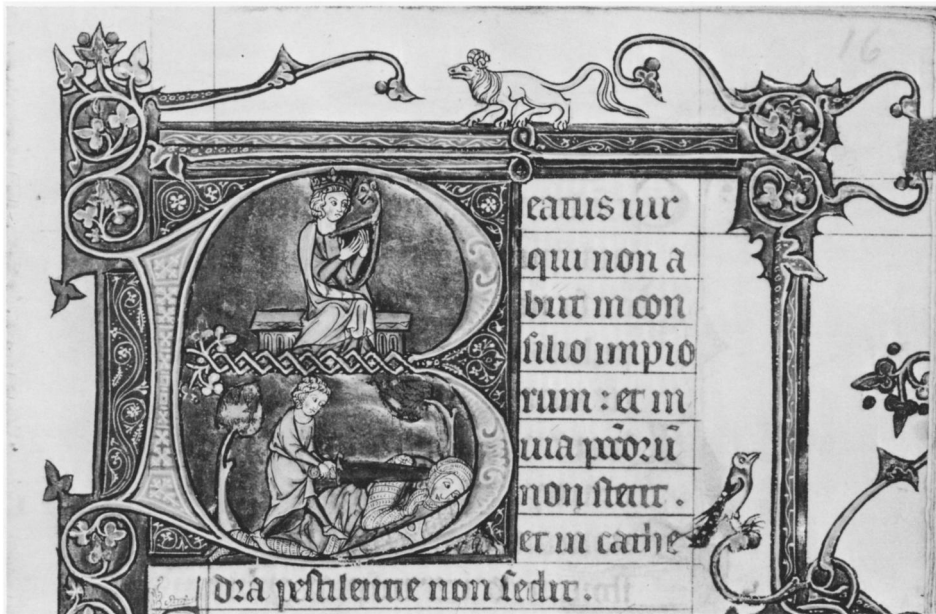 16
B
eatus uir
qui non a
biit in con
silio impio
rum : et in
uia pc̄c̄orū
non stetit .
et in cathe
dra pestilentie non sedit .